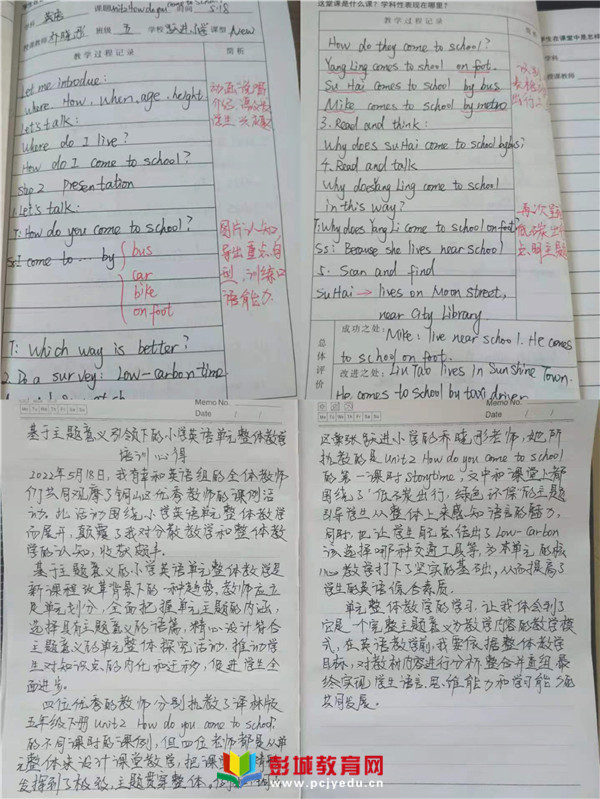 课题 Unit2 How do you come to school? 时间 5.18
班级 五 课型 New
教学过程记录 简析
Let me introduce:
Where, How, when, age, height
Let's talk:
Where do I live?
How do I come to school?
Step 2 Presentation
1. Let's talk:
T: How do you come to school?
Ss: I come to … by
bus
car
bike
on foot
T: Which way is better?
2. Do a survey: Low-carbon time
图片认知
导出重点句
型,训练口
语能力
这堂课是什么课?学科性表现在哪里?
How do they come to school?
Yang Ling comes to shool on foot.
Su Hai comes to school by bus
Mike comes to school by metro
3. Read and think:
Why does Su Hai come to school by bus?
4. Read and talk
Why does Yang Ling come to school
in this way?
T: Why does Yang Li come to school on foot?
Ss: Because she lives near school
5. Scan and find
Su Hai → lives on Moon street,
near City Library
再次
低碳出行
点明主题
总体评价
成功之处: Mike: live near school. He comes
to school on foot.
改进之处: Liu Tao lives in Sunshine Town.
He comes to school by taxi driver
Memo No.
Mo Tu We Th Fr Sa Su Date / /
基于主题意义引领下的小学英语单元整体教学
培训心得
2022年5月18日,我有幸和英语组的全体教师
们共同观摩了铜山区优秀教师的课例活
动。此活动围绕小学英语单元整体教学
而展开,颠覆了我对分散教学和整体教
学的认知,收获颇丰。
基于主题意义的小学英语单元整体教学是
新课程改革背景下的一种趋势,教师应立
足单元划分,全面把握单元主题的内涵,
选择具有主题意义的语篇,精心设计符合
主题意义的单元整体探究活动,推动学
生对知识点的内化和迁移,促进学生全
面进步。
四位优秀的教师分别执教了译林版
五年级下册Unit2 How do you come to school?
的不同课时的课例,但四位老师都是从单
元整体来设计课堂教学,把课堂
发挥到了极致,主题贯穿整体。
Memo No.
Mo Tu We Th Fr Sa Su Date / /
这里张跃进小学的乔晓彤老师,她所
执教的是Unit2 How do you come to school
的第一课时storytime,文中和课堂上都
围绕了"低碳出行,绿色环保"的主题
引导学生从整体上来感知语言的魅力,
同时,也让学生自己总结出了Low-Carbon
该选择哪种交通工具等,为本单元的核
心教学打下了坚实的基础,从而提高了
学生的英语综合素质。
单元整体教学的学习,让我体会到了
它是一个完整主题意义为教学内容的教学模
式,在英语教学前,我要依据整体教学
目标,对教材内容进行分析、整合并重组,最
终实现学生语言、思维能力和学习能力的
共同发展。
彭城教育网
www.pcjyedu.cn